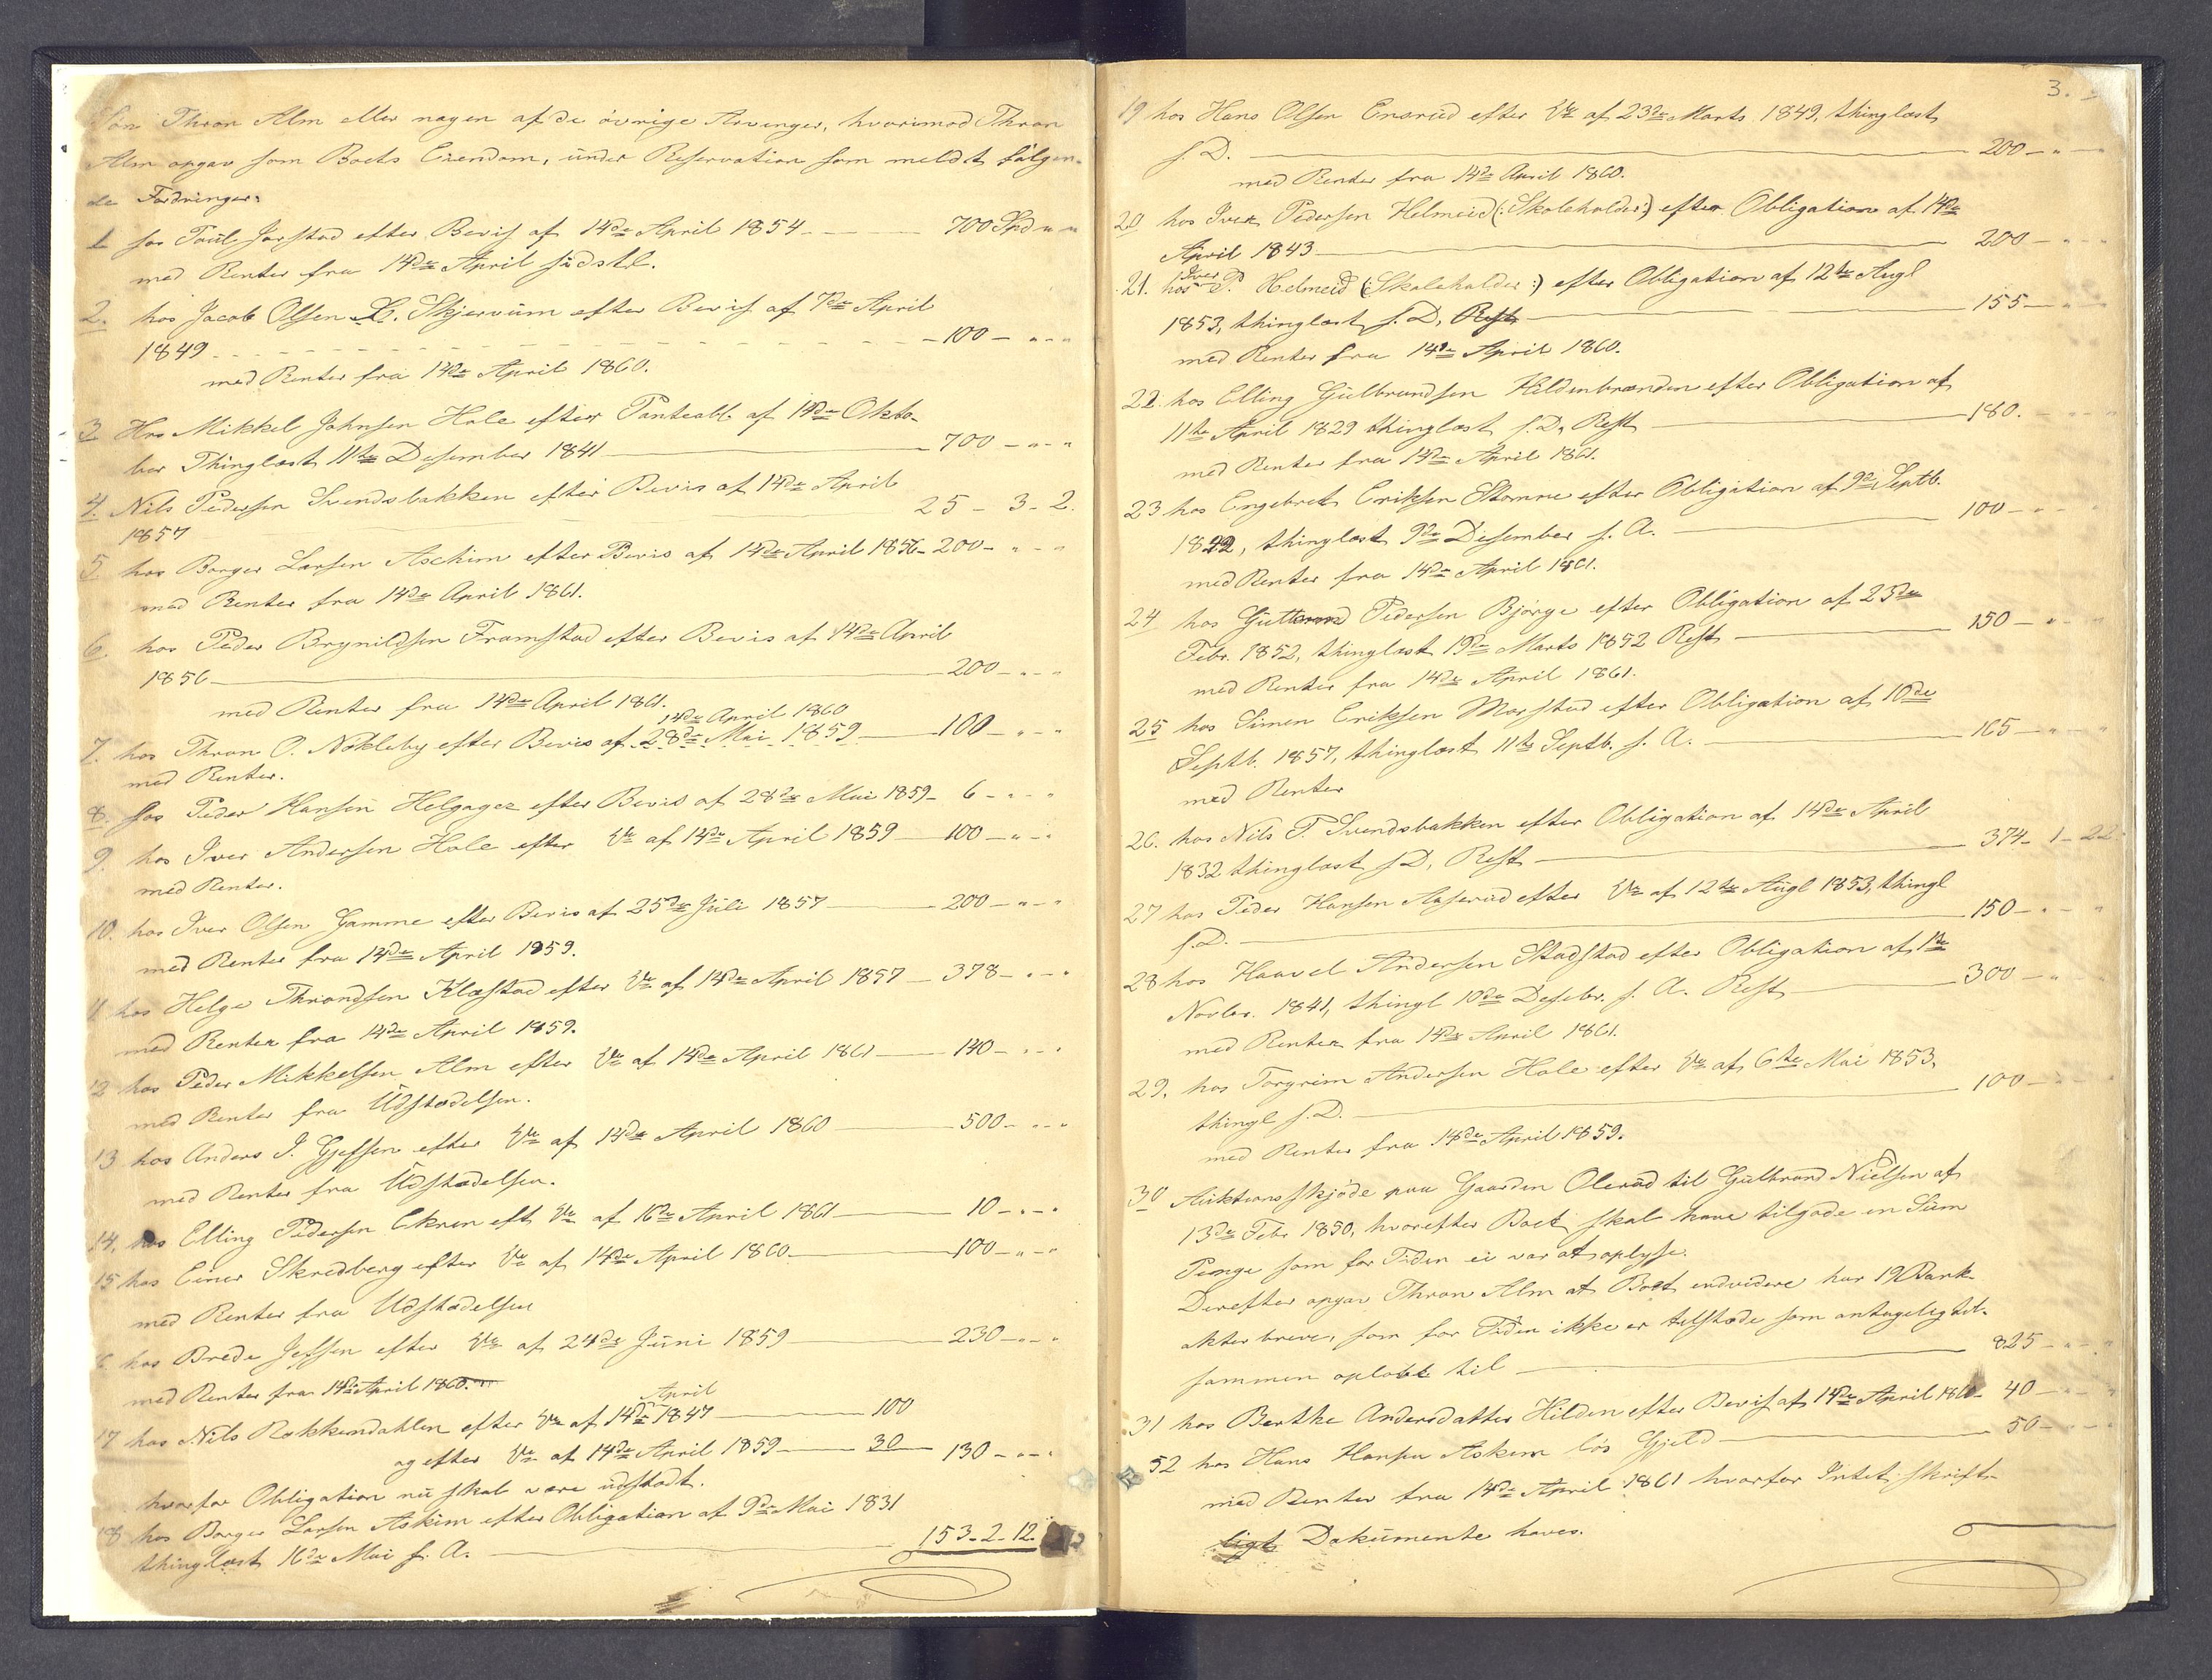 Søn Thron Alm eller nogen af de øvrige Arvinger, hvorimod Thron
Alm opgav som Boets Eiendom, under Reservation som meldt følgen-
de Fordringer:
1. hos Poul Jorstad efter Bevis af 14de April 1854 700 Spd " "
med Renter fra 14de April sidstl.
2. hos Jacob Olsen L. Skjervum efter Bevis af 7de April
1849 - 100 - " - "
med Renter fra 14de April 1860.
3. Hos Mikkel Johnsen Hole efter Panteobl. af 14de Okto-
ber Thinglæst 11te Desember 1841 - 700 - " - "
4. Nils Pedersen Svendsbakken efter Bevis af 14de April
1857 25 - 3 - 2.
5. hos Borger Larsen Aschim efter Bevis af 14de April 1856 - 200 - " - "
med Renter fra 14de April 1861.
6. hos Peder Brynildsen Framstad efter Bevis af 14de April
1856 - 200 - " - "
med Renter fra 14de April 1861.
14de April 1860
7. hos Thron O. Nøkleby efter Bevis af 28de Mai 1859 - 100 - " - "
med Renter.
8. hos Peder Hansen Helgager efter Bevis af 28de Mai 1859 - 6 - " - "
9. hos Iver Andersen Hole efter do af 14de April 1859 - 100 - " - "
med Renter.
10. hos Iver Olsen Gamme efter Bevis af 25de Juli 1857 - 200 - " - "
med Renter fra 14de April 1859.
11 hos Helge Throndsen Klæstad efter do af 14de April 1857 - 378 - " - "
med Renter fra 14de April 1859.
12 hos Peder Mikkelsen Alm efter do af 14de April 1861 - 140 - " - "
med Renter fra Udstædelsen.
13 hos Anders J. Gjefsen efter do af 14de April 1860 - 500 - " - "
med Renter fra Udstædelsen.
14. hos Elling Pedersen Ekren eft do af 16de April 1861 - 10 - " - "
15 hos Einer Skredberg efter do af 14de April 1860 - 100 - " - "
med Renter fra Udstædelsen
6. hos Brede Jefsen efter do af 24de Juni 1859 - 230 - " - "
med Renter fra 14de April 1860.
April
17 hos Nils Rokkendahlen efter do af 14de 1847 - 100
og efter do af 14de April 1859 - 30 - 130 - " - "
hvorfor Obligation nu skal være udstædt.
18 hos Borger Larsen Askim efter Obligation af 9de Mai 1831
thinglæst 16de Mai s. A. - 153 - 2 - 12.
3.
19 hos Hans Olsen Ensrud efter do af 23de Marts 1849, thinglæst
s. D. - 200 - " -
med Renter fra 14de April 1860.
20 hos Iver Pedersen Helmeid (: Skoleholder :) efter Obligation af 14de
April 1843 - 200 - " - "
Iver
21. hos P. Helmeid (: Skoleholder :) efter Obligation af 12te Augl
1853, thinglæst s. D, Rest - 155 - "
med Renter fra 14de April 1860.
22. hos Elling Gulbrandsen Hildenbrænden efter Obligation af
11te April 1829 thinglæst s. D, Rest - 180. - " - "
med Renter fra 14de April 1861.
23 hos Engebret Eriksen Stomne efter Obligation af 9de Septb.
1822, thinglæst 9de Desember s. A. - 100 - " -
med Renter fra 14de April 1861.
24 hos Guttorm Pedersen Bjørge efter Obligation af 23de
Febr. 1852, thinglæst 19de Marts 1852 Rest - 150 - " -
med Renter fra 14de April 1861.
25 hos Simen Eriksen Morstad efter Obligation af 10de
Septb. 1857, thinglæst 11te Septb. s. A. - 165 - " - "
med Renter
26. hos Nils P. Svendsbakken efter Obligation af 14de April
1832 thinglæst s D, Rest - 374 - 1 - 22.
27 hos Peder Hansen Aaserud efter do af 12te Augl 1853, thingl
s. D. - 150 - " - "
28 hos Haavel Andersen Stadstad efter Obligation af 1te
Novbr. 1841, thingl 10de Desebr. s. A. Rest - 300 - "
med Renter fra 14de April 1861.
29. hos Torgrim Andersen Hole efter do af 6te Mai 1853,
thingl s. D. - 100 -
med Renter fra 14de April 1859.
30 Auktionsskjøde paa Gaarden Olerud til Gulbrand Nielsen af
13de Febr 1850, hvorefter Boet skal have tilgode en Sum
Penge som for Tiden ei var at oplyse.
Derefter opgav Thron Alm at Boet endvidere har 19 Bank-
akter breve, som for Tiden ikke er tilstæde som antageligt til-
sammen opløbe til - 825 - " - "
31 hos Berthe Andersdatter Hilden efter Bevis af 14de April 1860 - 40 - " - "
32 hos Hans Hansen Askem løs Gjeld - 50 - " - "
med Renter fra 14de April 1861 hvorfor Intet skrift-
ligt Dokumente haves.